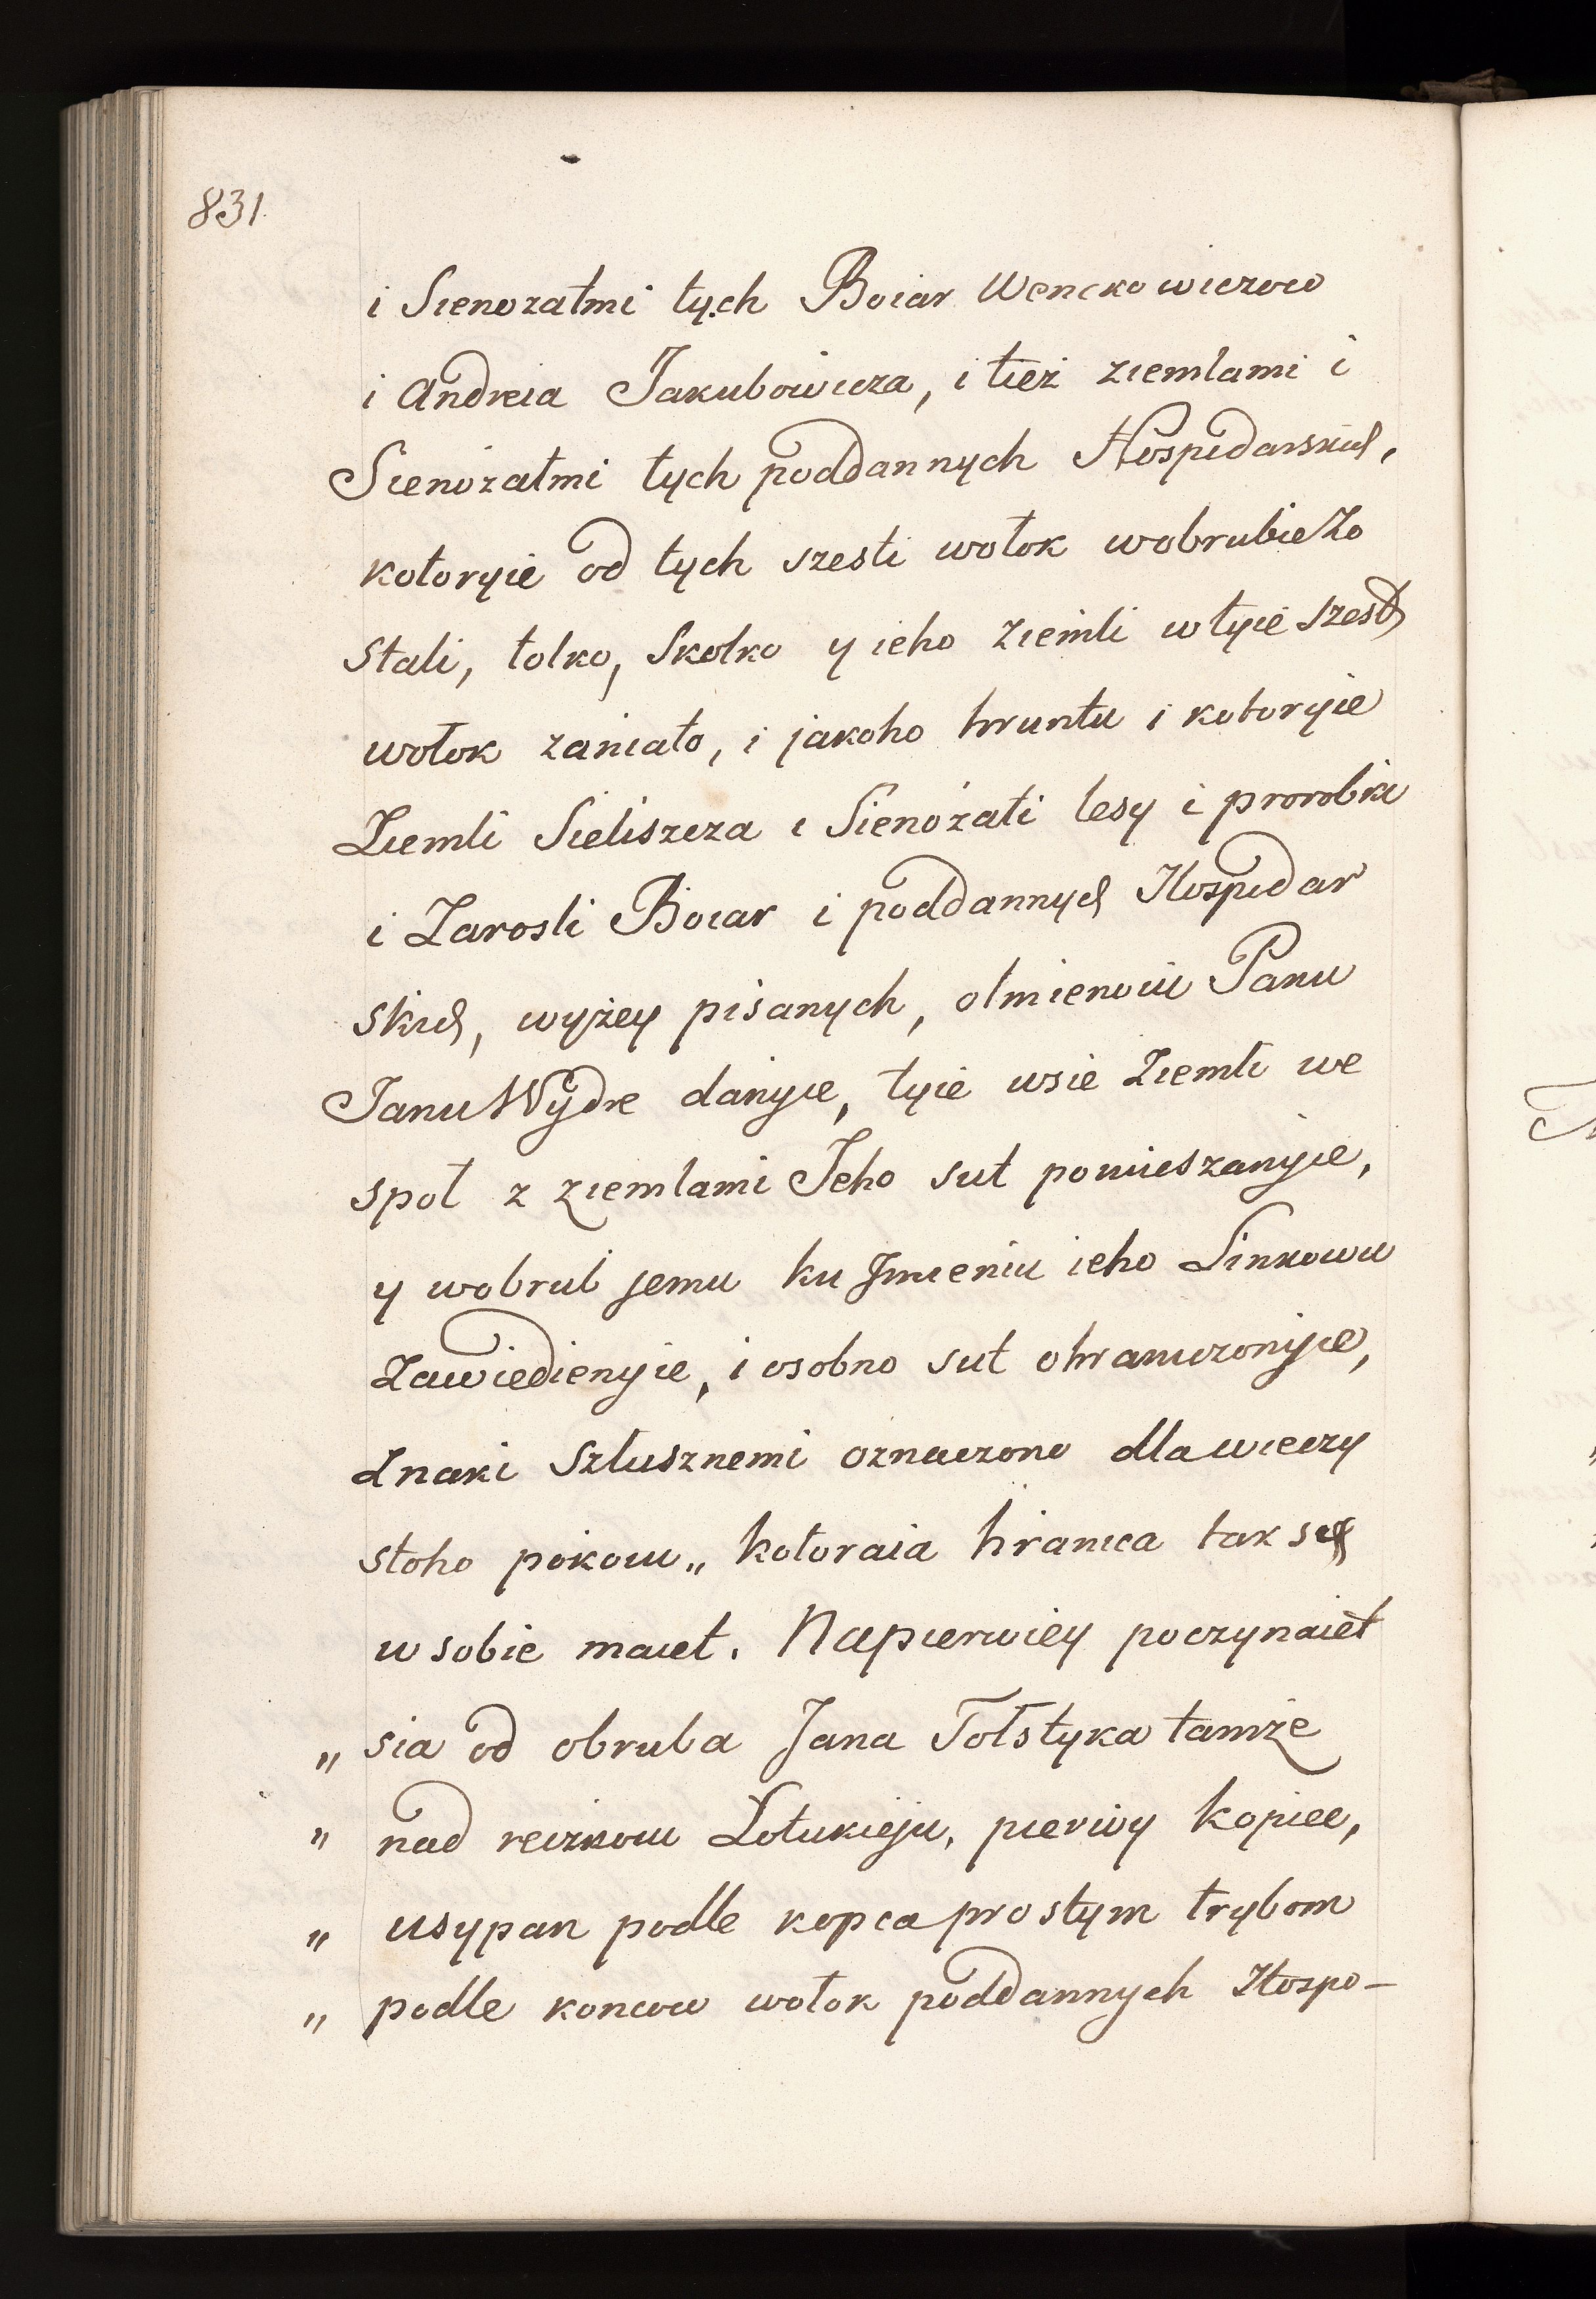 831
i Sienozatmi tych Boiar Wenckowiczow
i Andreia Jakubowicza, i tież ziemlami i
Sienożatmi tych poddannych Hospodarskich,
kotoryie od tych szesti wołok wobrubie Zo
stali, tolko, Skolko y ieho Ziemli w tyie szest
wołok zaniało, i jakoho hruntu i kotoryie
Ziemli Sieliszcza i Sienożati lesy i prorobki
i Zarosli Boiar i poddannych Hospodar
skich, wyżey pisanych, otmienoiu Panu
Janu Wydre danyie, tyie wsie Ziemli we
społ z ziemlami Jeho sut pomieszanyie,
y wobrub jemu ku Jmieniu ieho Sinkowu
Zawiedienyie, i osobno sut ohraniczonyie,
Znaki Szłusznemi oznaczono dla wieczy
stoho pokoiu „ kotoraia hranica tak się
w sobie maiet. Napierwiey poczynaiet
„ sia od obruba Jana Tołstyka tamże
„ nad reczkoiu Łotukieju, pierwy kopiec,
„ usypan podle kopca prostym trybom
„ podle koncow wołok poddannych Hospo-